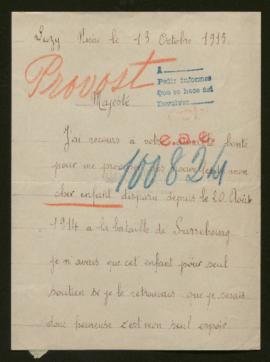 Luzy Nièvre le 13 Octobre 1915.
Provost
A
Pedir informes
Que se hace así
Devolver
Majesté
J'ai recours à votre bonté
pour me procurer des mon
100824
cher enfant disparu depuis le 20 Août
1914 à la bataille de Sarrebourg
je n'avais que cet enfant pour seul
soutien si je le retrouvais que je serais
donc heureuse c'est mon seul espoir